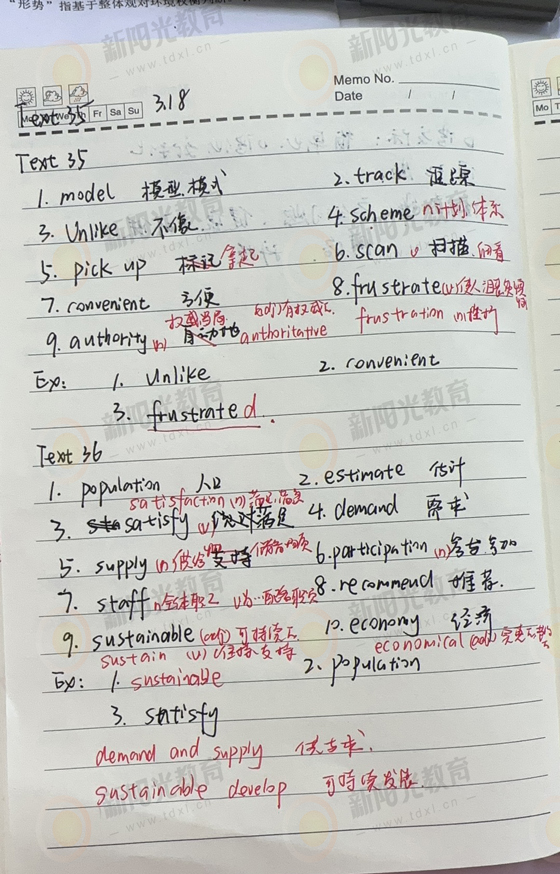 "形势"指基于整体观对环境
Memo No.
Date / /
Mo We Fr Sa Su
Text 35 3.18
Text 35
1. model 模型.模式 2. track 追踪
3. Unlike 不像 4. scheme n计划.体系
5. pick up 标记 拿起 6. scan v 扫描.
7. convenient 方便 8. frustrate (v)
权威.当局 (adj)有权威 frustration (n)挫折
9. authority (n) 自动地 authoritative
Ex: 1. Unlike 2. convenient
3. frustrated.
Text 36
1. population 人口 2. estimate 估计
satisfaction (n) 满足.满意
3. satisfy (v) 满足 4. demand 需求
5. supply (n) 供给 支持 6. participation (n) 参加
7. staff n全体职工 v为…配备职员 8. recommend 推荐.
9. sustainable (adj) 可持续的 10. economy 经济
sustain (v) 维持.支持 economical (adj)
Ex: 1. sustainable 2. population
3. satisfy
demand and supply 供与求.
sustainable develop 可持续发展.
新阳光教育
www.tdxl.cn